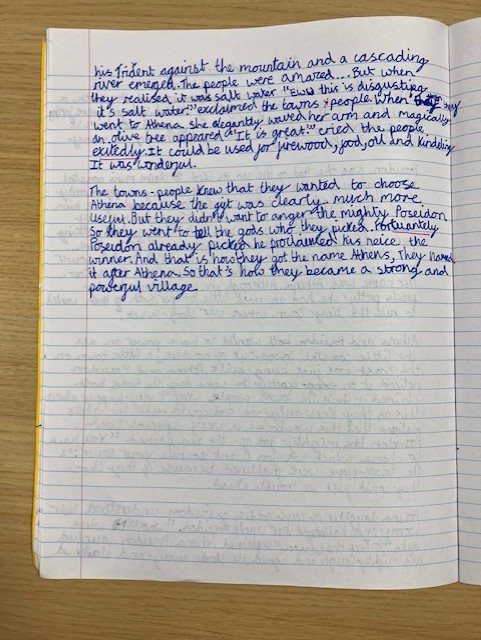 his Trident against the mountain and a cascading
river emerged. The people were amazed... But when
they realised it was salt water "Eww this is disgusting
it's salt water" exclaimed the towns-people. When they
went to Athena she elegantly waved her arm and magically
an olive tree appeared "It is great" cried the people
exitedly. It could be used for firewood, food, oil and kindling
It was wonderful.
The towns-people knew that they wanted to choose
Athena because the gift was clearly much more
useful. But they didn't want to anger the mighty Poseidon
So they went to tell the gods who they picked. Fortuantely
Poseidon already picked he proclaimed his neice, the
winner. And that is how they got the name Athens, They named
it after Athena. So that's how they became a strong and
powerful village.